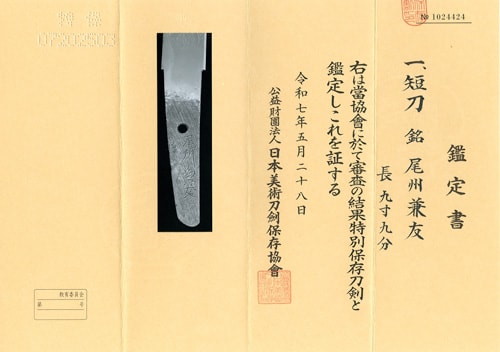 № 1024424
鑑定書
一、短刀 銘 尾州兼友
長 九寸九分
右は當協會に於て審査の結果特別保存刀剣と
鑑定しこれを証する
令和七年五月二十八日
公益財團法人 日本美術刀剣保存協會
特保
07202503
教育委員会
第 号